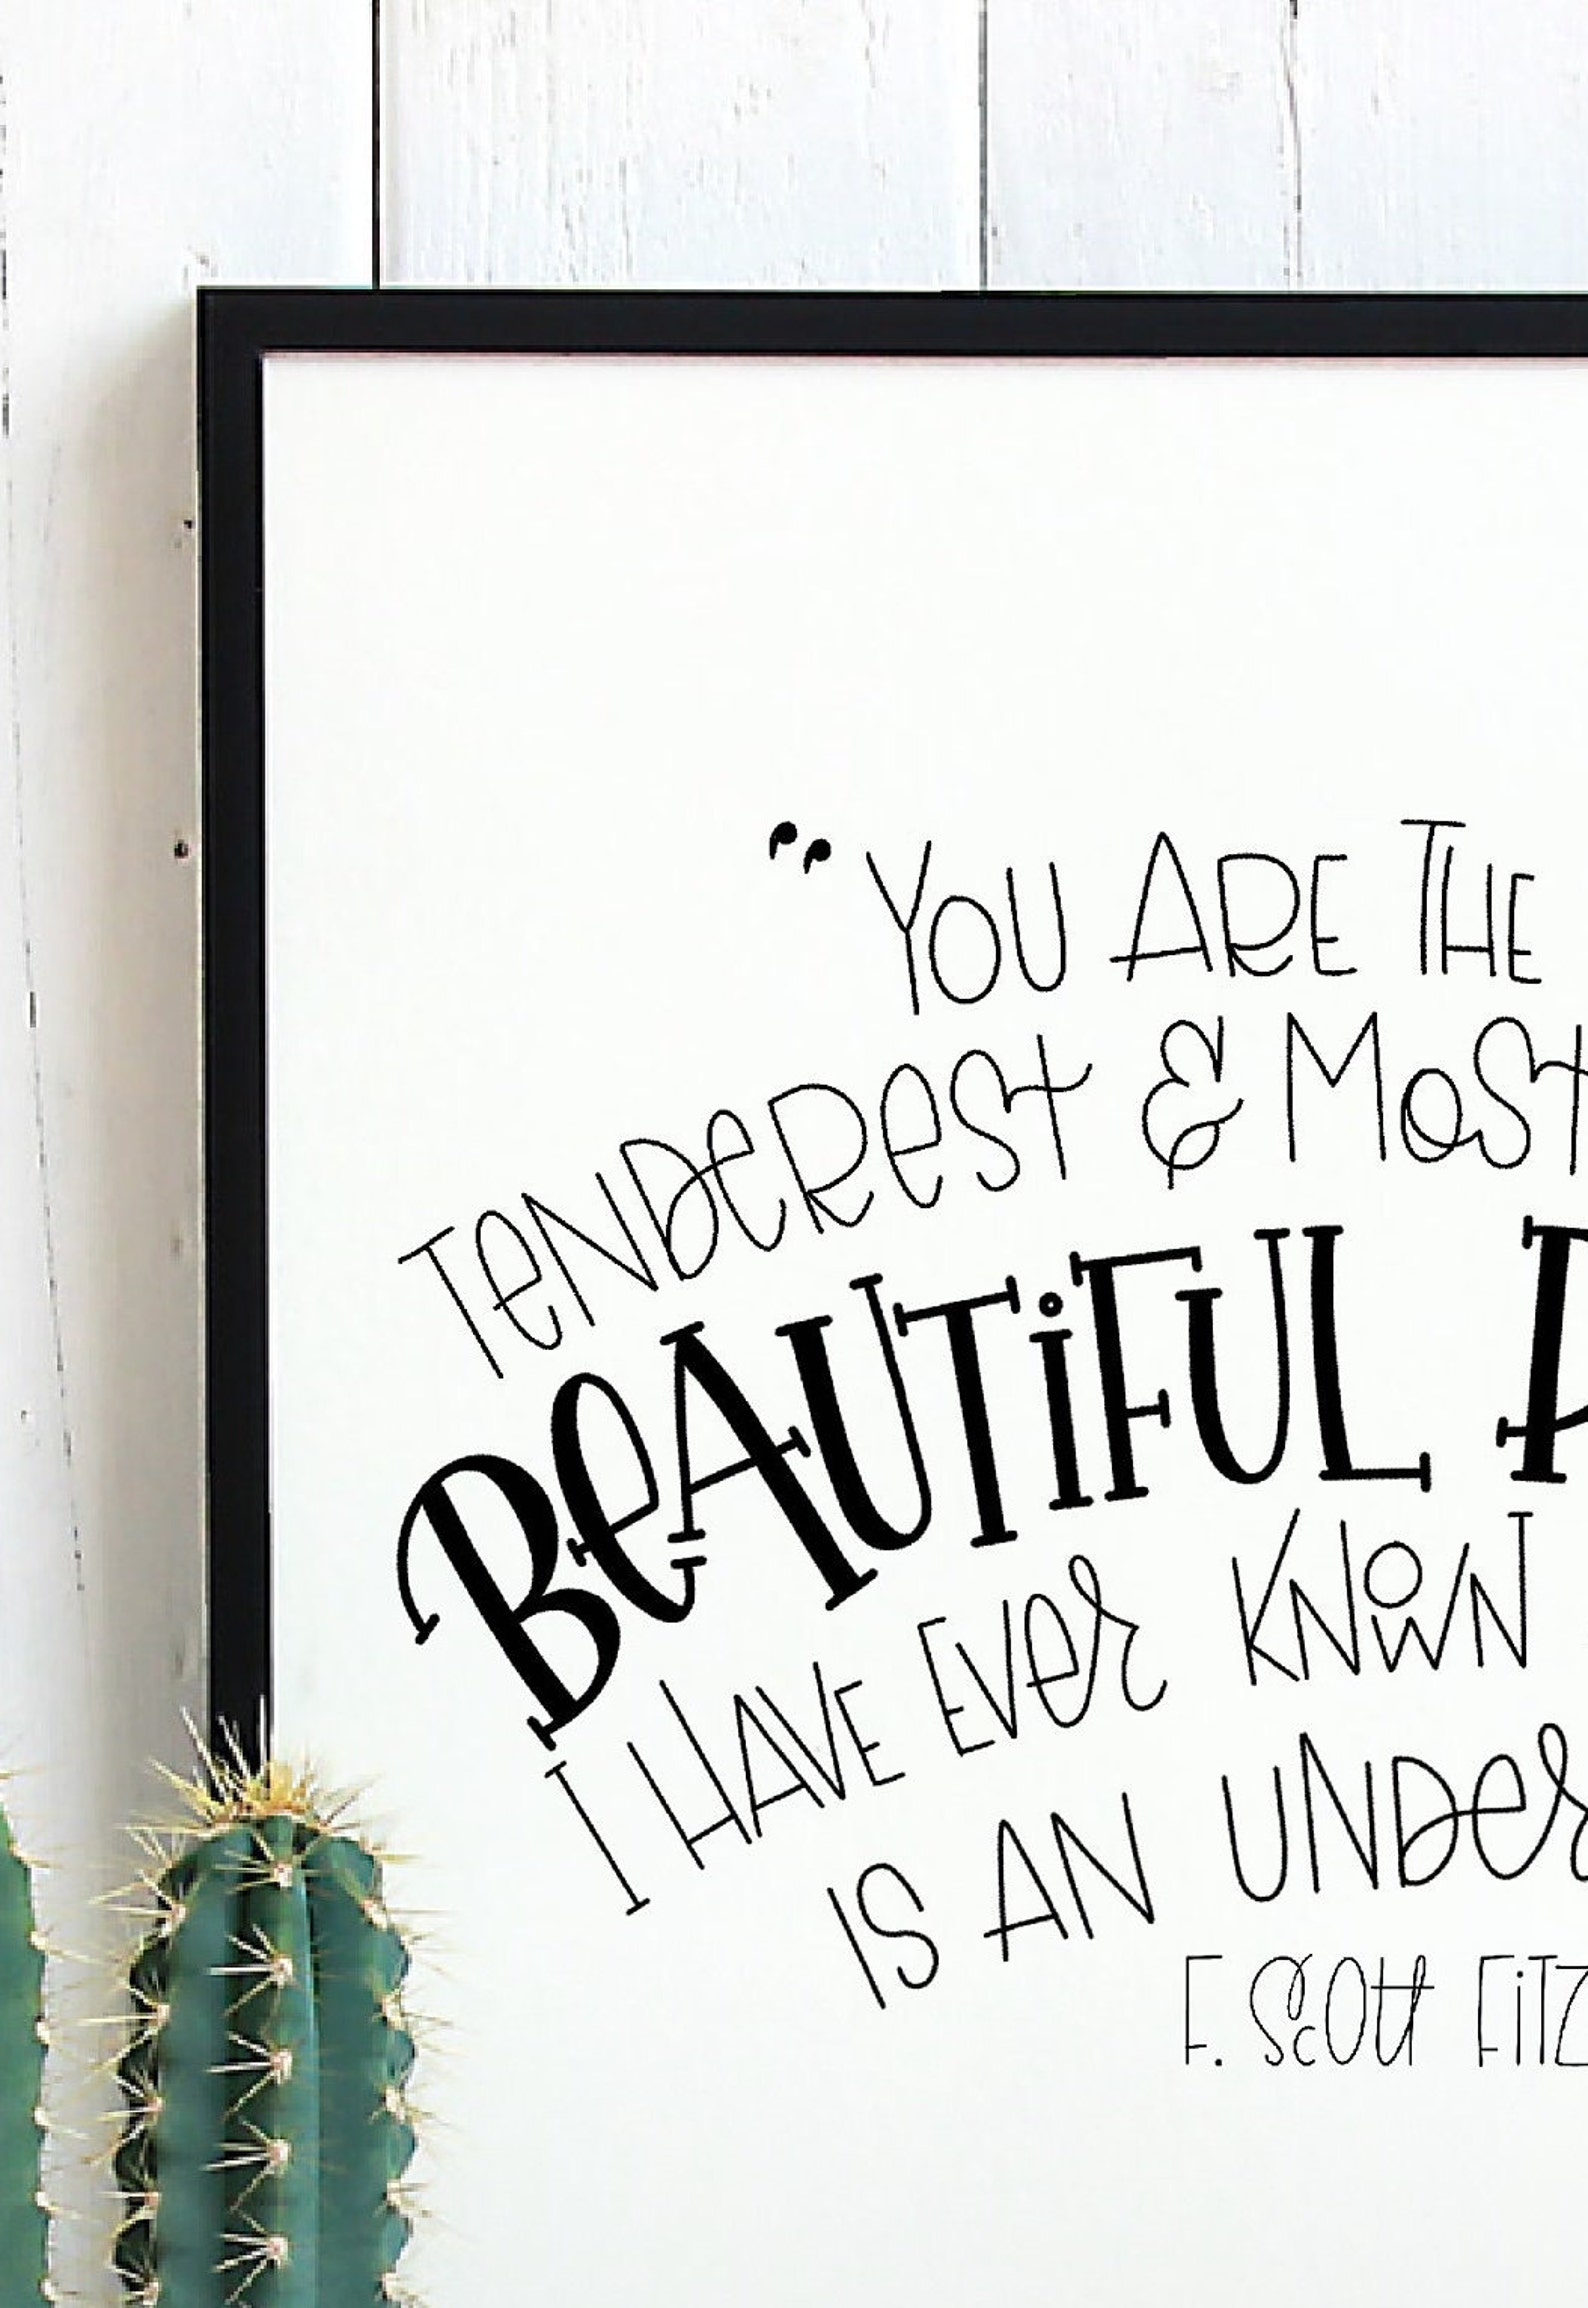 “YOU ARE THE
TENDEREST & MOST
BEAUTIFUL
I HAVE EVER KNOWN
IS AN UNDER
F. SCOTT FITZ